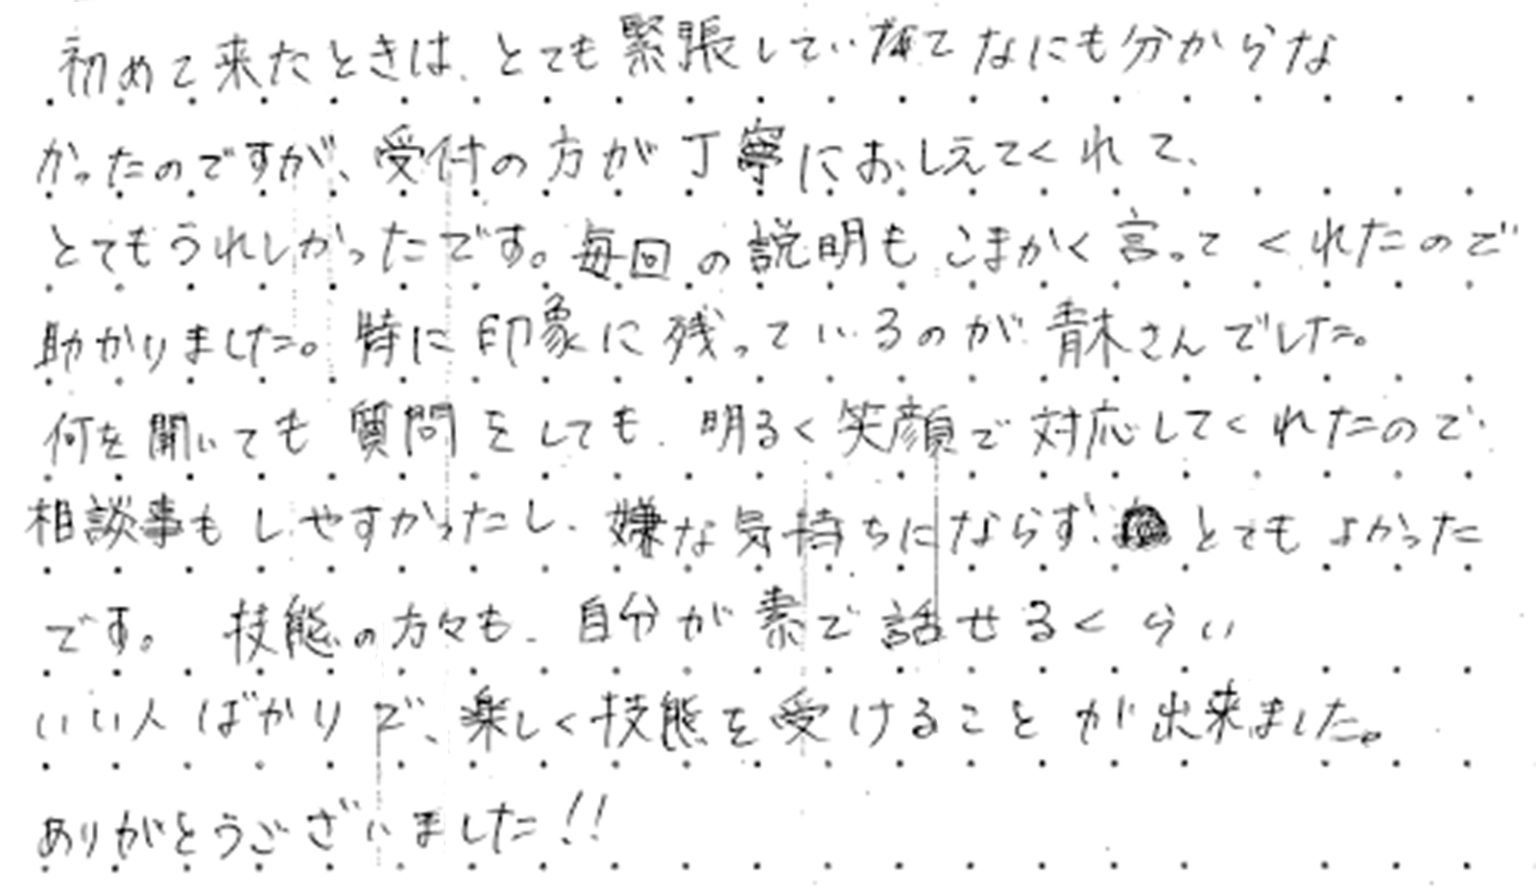 初めて来たときは、とても緊張していてなにも分からな
かったのですが、受付の方が丁寧におしえてくれて、
とてもうれしかったです。毎回の説明もこまかく言ってくれたので
助かりました。特に印象に残っているのが青木さんでした。
何を聞いても質問をしても、明るく笑顔で対応してくれたので
相談事もしやすかったし、嫌な気持ちにならず、とてもよかった
です。技能の方々も、自分が素で話せるくらい
いい人ばかりで、楽しく技能を受けることが出来ました。
ありがとうございました!!